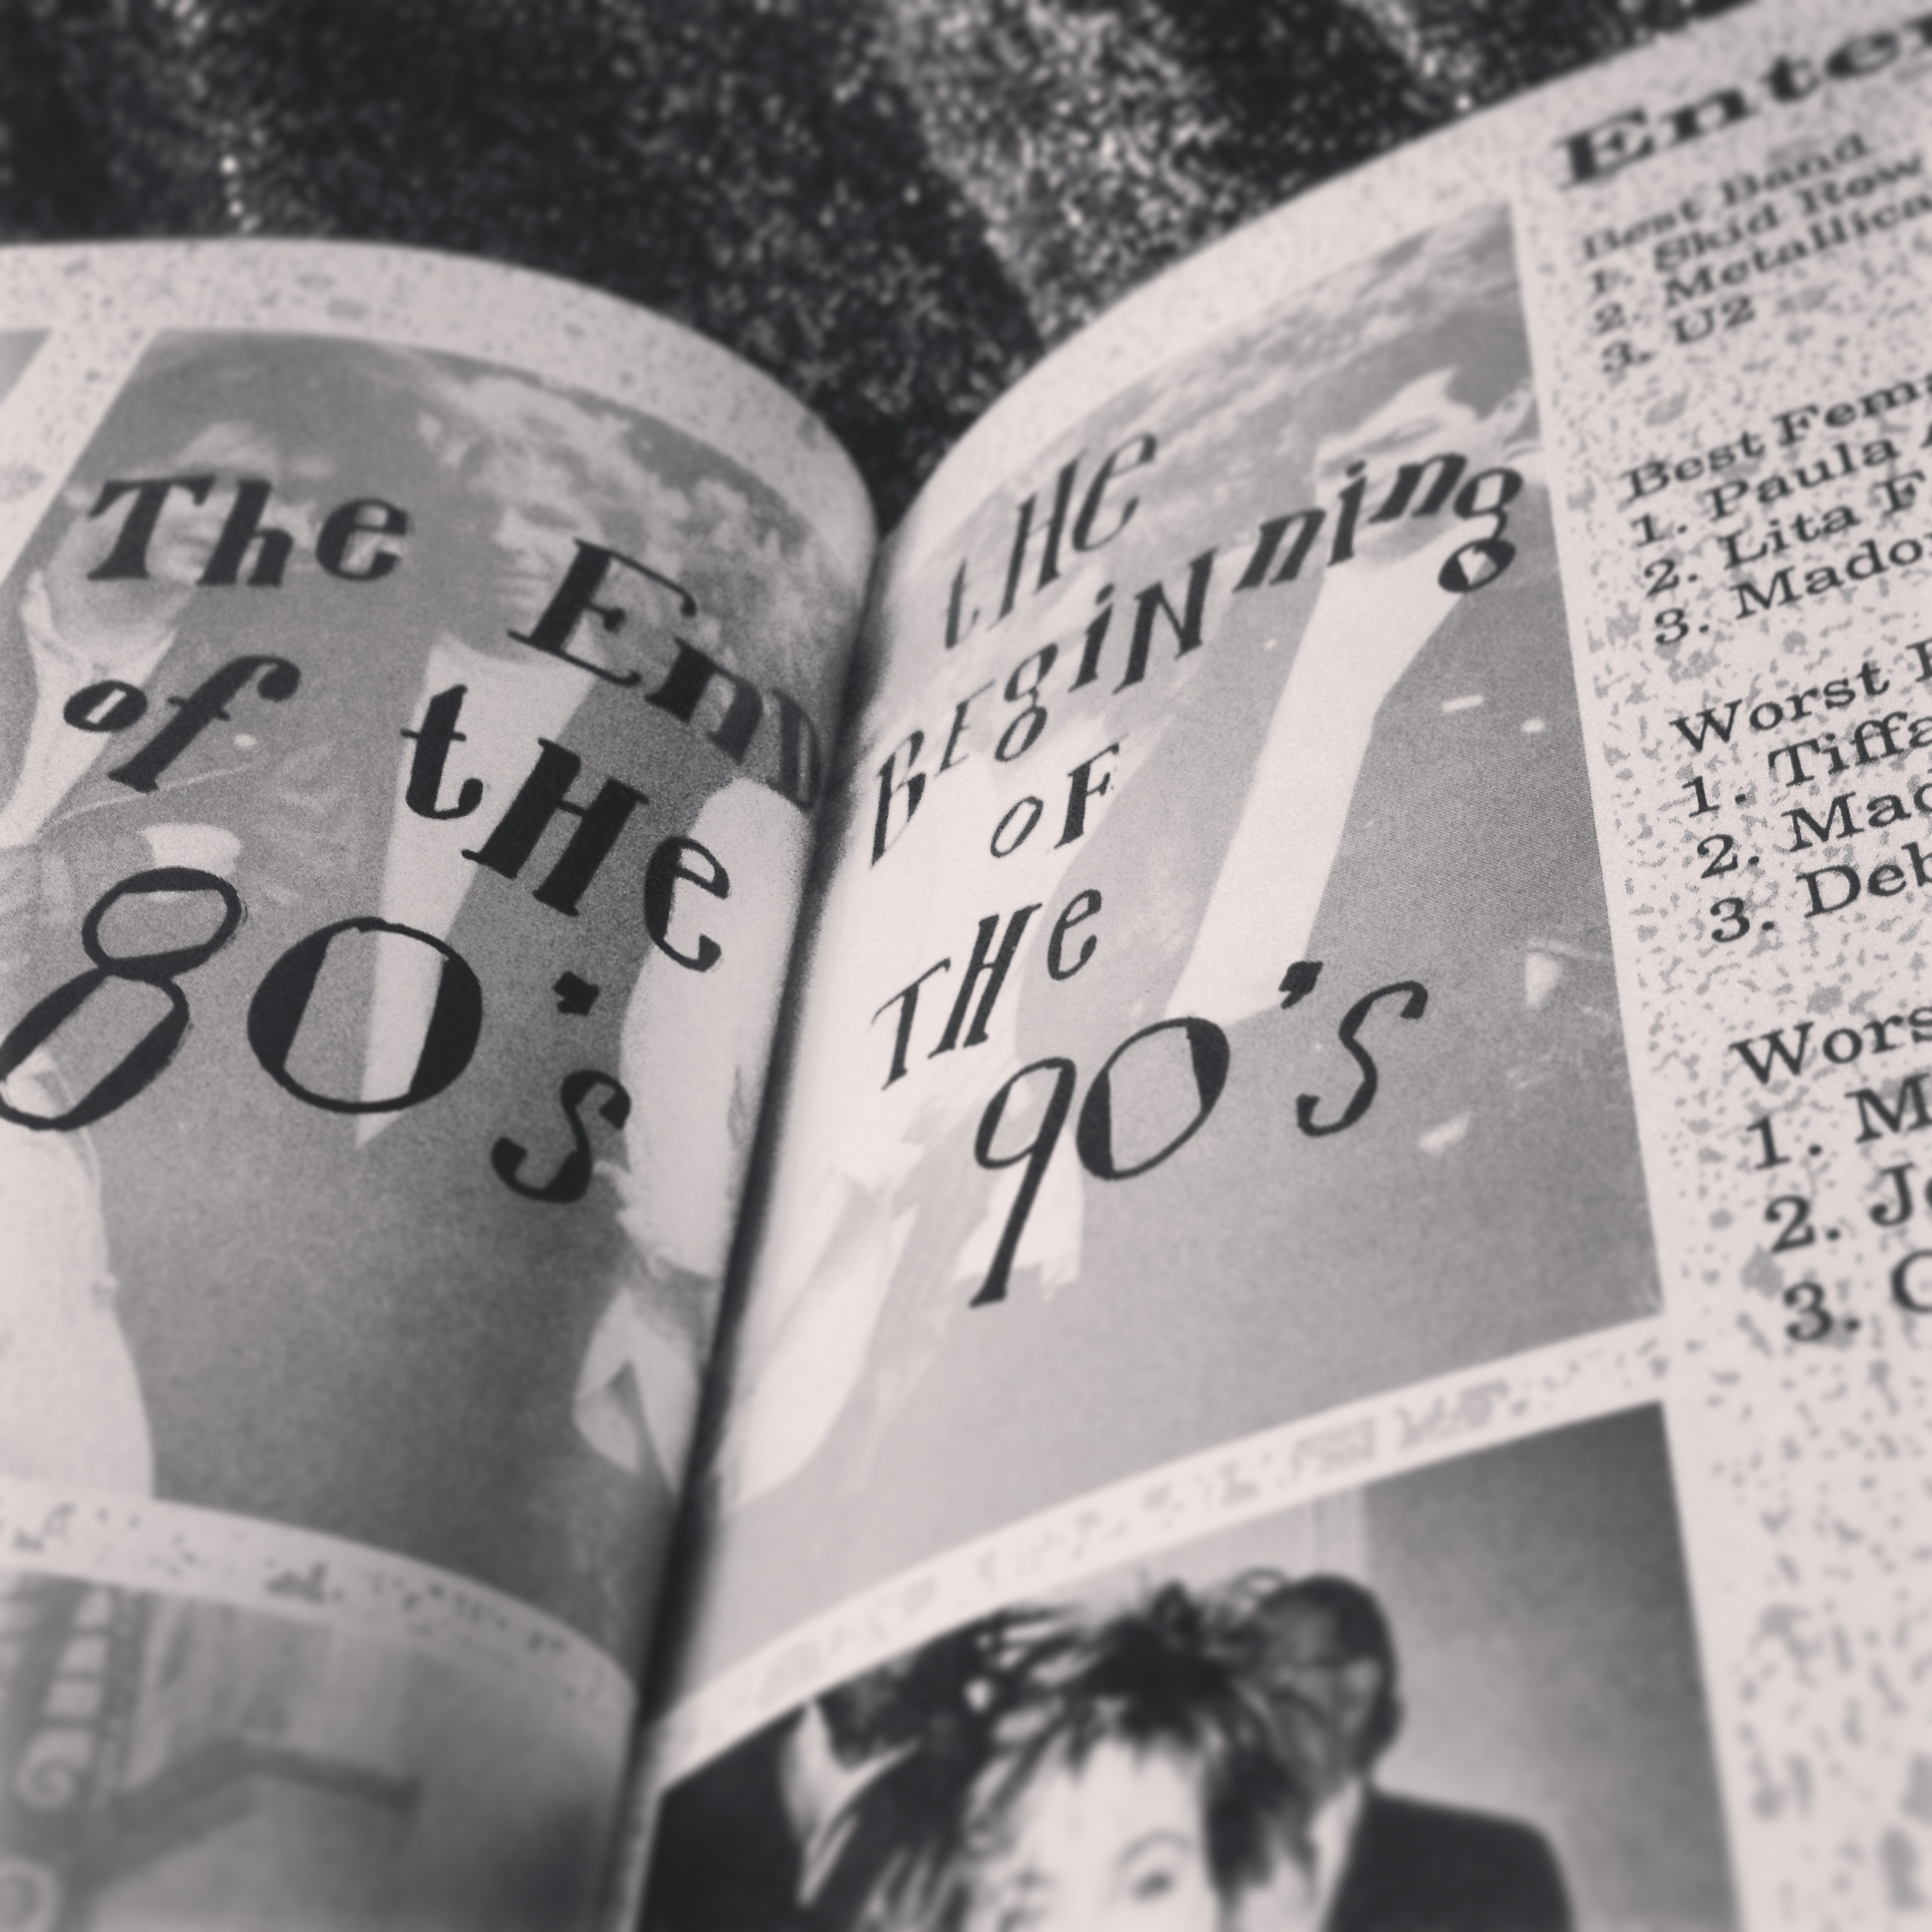 The End
of tHe
80's
tHe
BEgiNning
oF
THe
90's
Enter
Best Band
1. Skid Row
2. Metallica
3. U2
Best Fema
1. Paula A
2. Lita F
3. Mado
Worst
1. Tiffa
2. Mad
3. Deb
Wors
1. M
2. Je
3.